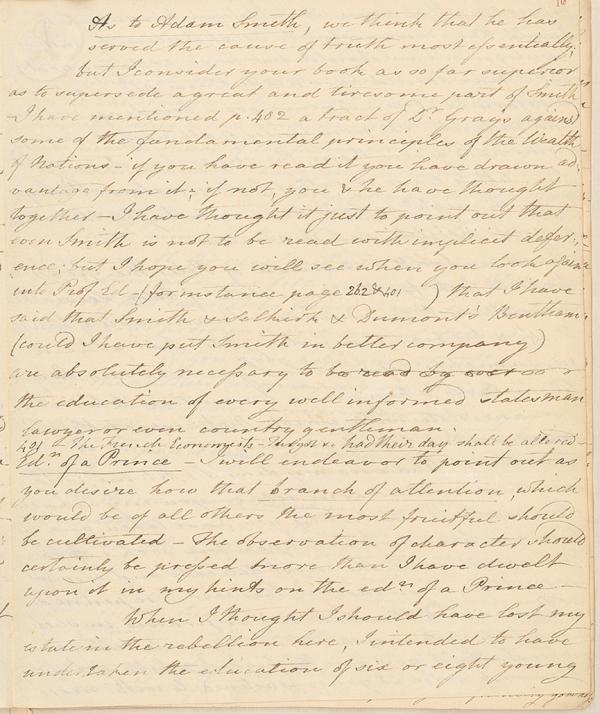 As to Adam Smith, we think that he has
served the cause of truth most essentially;
but I consider your book as so far superior
as to supersede a great and tiresome part of Smith
- I have mentioned p. 402 a tract of Dr Grays against
some of the fundamental principles of the Wealth
of Nations - if you have read it you have drawn ad-
vantage from it; if not, you & he have thought
together - I have thought it just to point out that
even Smith is not to be read with implicit defer-
ence; but I hope you will see when you look again
into Prof. Ed - (for instance page 262 & 401 ) that I have
said that Smith & Selkirk & Dumont's Bentham
(could I have put Smith in better company)
are absolutely necessary to be read by
the education of every well informed statesman
lawyer or even country gentleman.
401 - The French Economists - Turgot had their day shall be altered -
Edn of a Prince - I will endeavor to point out as
you desire how that branch of attention, which
would be of all others the most fruitful should
be cultivated - The observation of character should
certainly be pressed more than I have dwelt
upon it in my hints on the edn of a Prince -
When I thought I should have lost my
estate in the rebellion here, I intended to have
undertaken the education of six or eight young